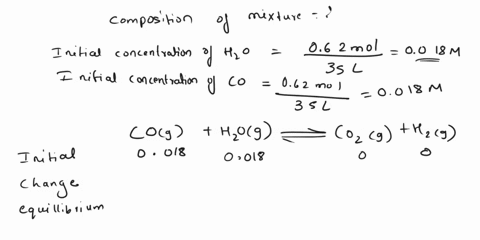 Composition of mixture = ?
Initial concentration of H2O = 0.62 mol / 35 L = 0.018 M
Initial concentration of CO = 0.62 mol / 35 L = 0.018 M
CO(g) + H2O(g) ⇌ CO2(g) + H2(g)
Initial 0.018 0.018 0 0
Change
equillibrium